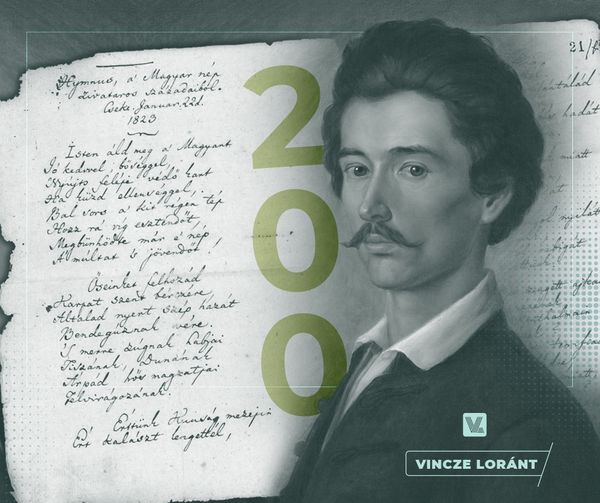 Hymnus, a' Magyar nép
zivataros századaiból.
Cseke. Januar. 22d.
1823
Isten áld meg a' Magyart
Jó kedvvel, bőséggel,
Nyújts feléje védő kart
Ha küzd ellenséggel,
Bal sors a' kit régen tép
Hozz rá víg esztendőt,
Megbűnhődte már e' nép
A' múltat 's jövendőt!
Őseinket felhozád
Kárpát szent bérczére,
Általad nyert szép hazát
Bendegúznak vére.
'S merre zúgnak habjai
Tiszának, Dunának
Árpád hős magzatjai
Felvirágozának.
Értünk Kunság mezejin
Ért kalászt lengettél,
200
21/
VL
VINCZE LORÁNT